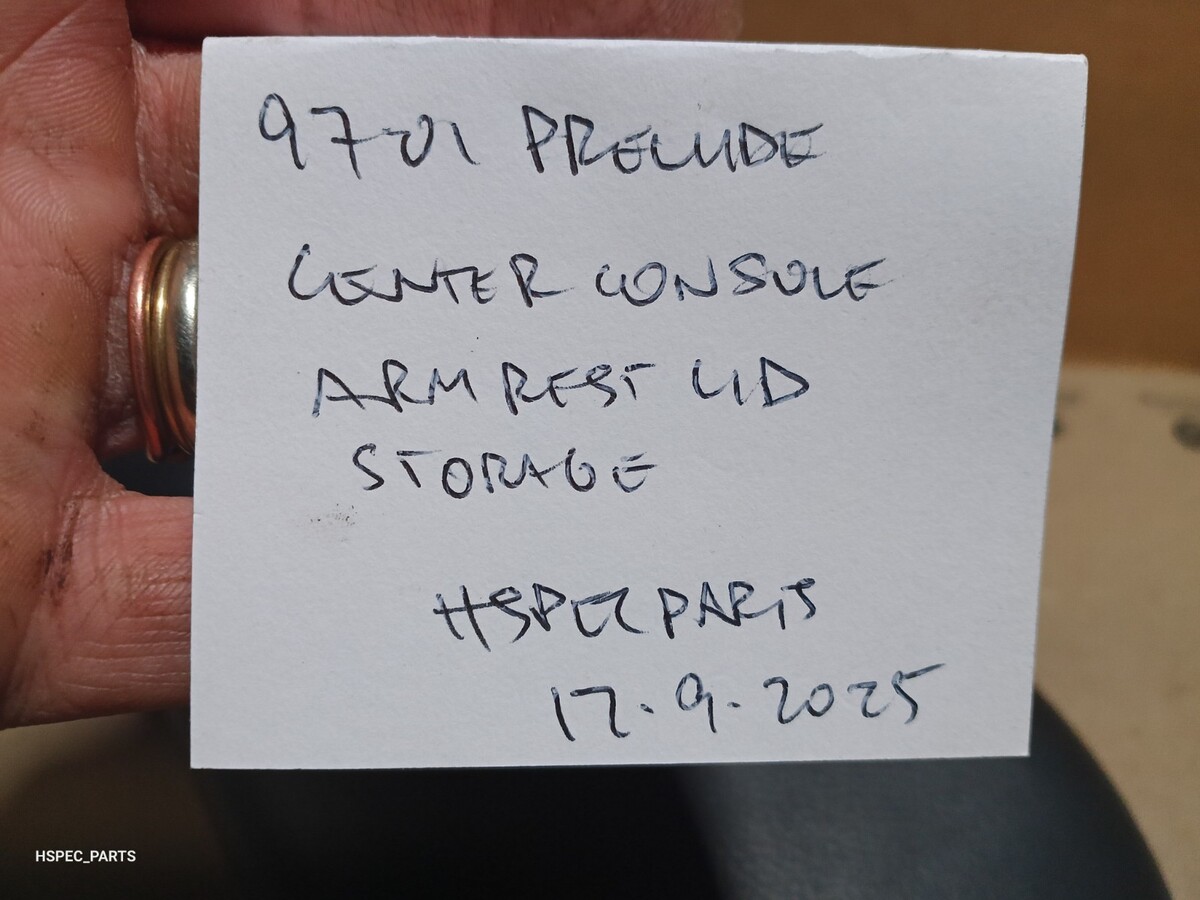 97-01 PRELUDE
CENTER CONSOLE
ARM REST LID
STORAGE
HSPEC PARTS
17.9.2025
HSPEC_PARTS